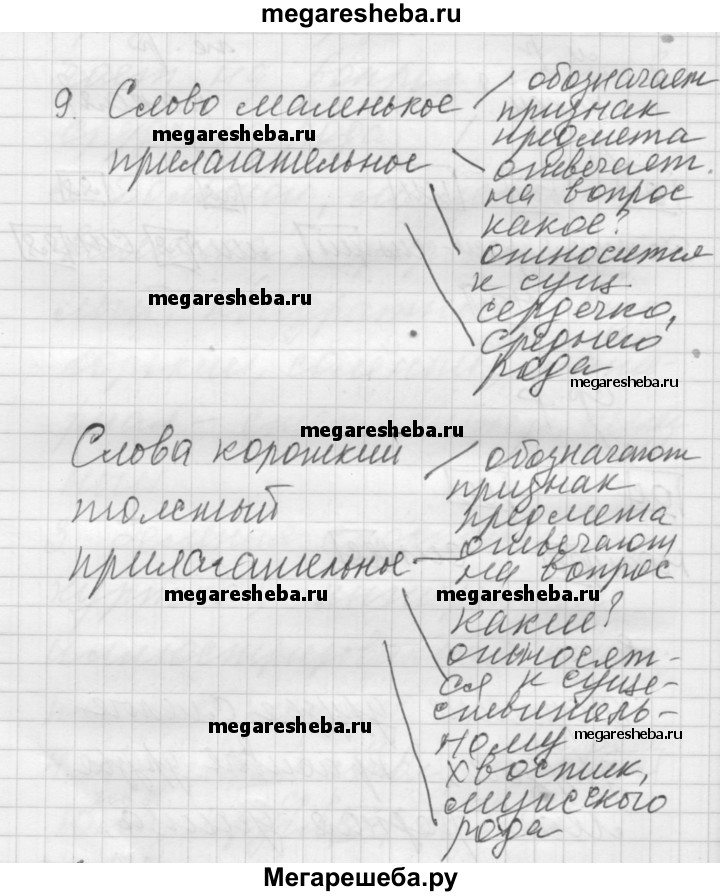 megaresheba.ru
9. Слово маленькое
прилагательное
обозначает
признак
предмета
отвечает
на вопрос
какое?
относится
к сущ.
сердечко,
среднего
рода
megaresheba.ru
megaresheba.ru
megaresheba.ru
megaresheba.ru
megaresheba.ru
Слова короткий
толстый
прилагательное
обозначают
признак
предмета
отвечают
на вопрос
какие?
относят-
ся к суще-
ствитель-
ному
хвостик,
мужского
рода
megaresheba.ru
megaresheba.ru
megaresheba.ru
megaresheba.ru
Мегарешеба.ру